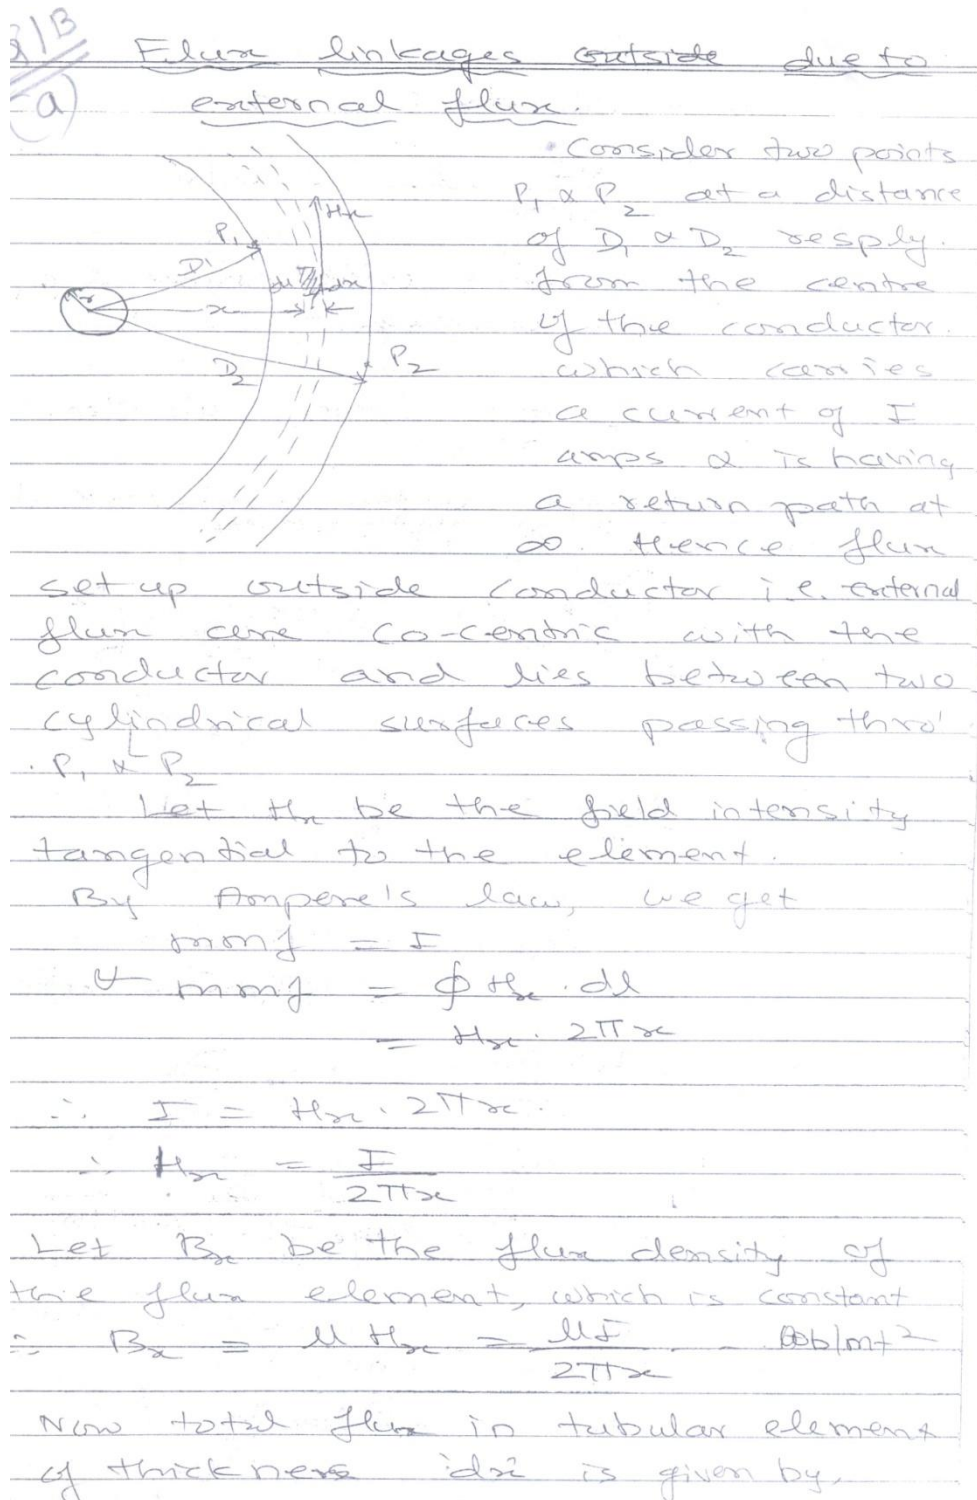 3/B
a)
Flux linkages outside due to
external flux.
Consider two points
P₁ & P₂ at a distance
of D₁ & D₂ resply.
from the centre
of the conductor.
which carries
a current of I
amps & is having
a return path at
∞. Hence flux
Hx
P₁
D₁
dl
dx
r
x
P₂
D₂
set up outside conductor i.e. external
flux are co-centric with the
conductor and lies between two
cylindrical surfaces passing thro'
P₁ & P₂
Let Hx be the field intensity
tangential to the element.
By Ampere's law, we get
mmf = I
& mmf = ∮ Hx . dl
= Hx . 2πx
∴ I = Hx . 2πx.
∴ Hx = I / 2πx
Let Bx be the flux density of
the flux element, which is constant
∴ Bx = μ Hx = μI / 2πx - - wb/mt²
Now total flux in tubular element
of thickness 'dx' is given by,